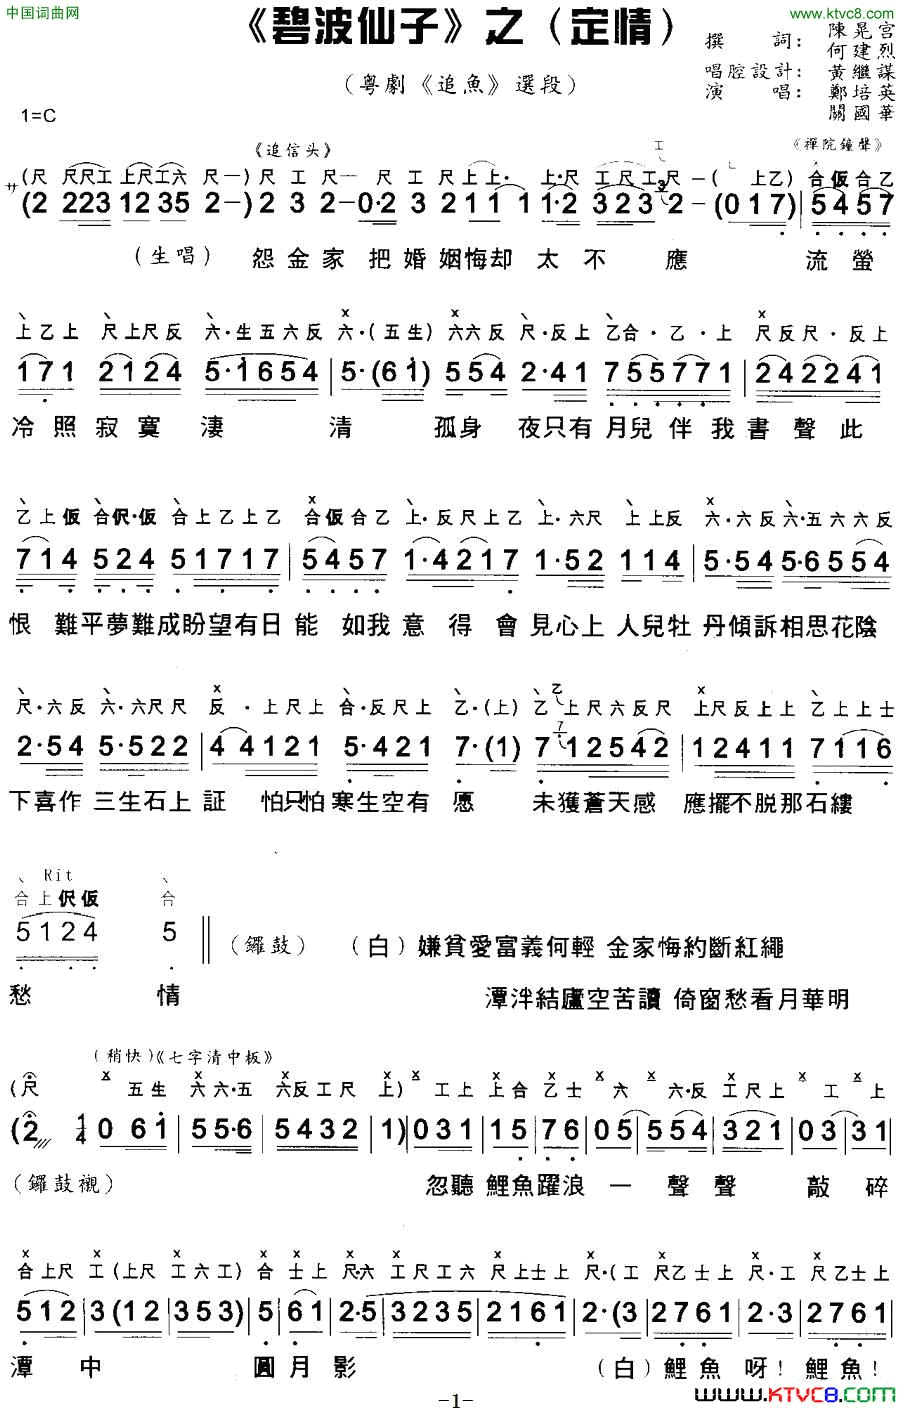 中国词曲网
www.ktvc8.com
《碧波仙子》之（定情）
（粵劇《追魚》選段）
撰　詞：陳晃宮
何建烈
唱腔設計：黃繼謀
演　唱：鄭培英
關國華
1=C
《追信头》
《禪院鐘聲》
サ
(尺 尺尺工 上尺工六 尺一) 尺 工 尺一 尺 工 尺 上 上· 上·尺 工 尺 工 尺一( 上乙) 合仮合乙
(2 223 1235 2-) 2 3 2 -0·2 3 2 1 1 1 1·2 3 2 3 2 -(0 1 7) 5 4 5 7
（生唱） 怨金家 把婚姻悔却 太不應 流螢
上乙上 尺上尺反 六·生五六反 六·(五生) 六六反 尺·反上 乙合·乙·上 尺反尺·反上
1 7 1 2 1 2 4 5·1 6 5 4 5·(6 1) 5 5 4 2·4 1 7 5 5 7 7 1 2 4 2 2 4 1
冷照寂寞淒 清 孤身 夜只有月兒伴我書聲此
乙上仮 合伬·仮 合上乙上乙 合仮合乙 上·反尺上乙 上·六尺 上上反 六·六反六·五六六反
7 1 4 5 2 4 5 1 7 1 7 5 4 5 7 1·4 2 1 7 1·5 2 1 1 4 5·5 4 5·6 5 5 4
恨 難平夢難成盼望有日能 如我意得會見心上人兒牡丹傾訴相思花陰
尺·六反 六·六尺尺 反·上尺上 合·反尺上 乙·(上) 乙上尺六反尺 上尺反上上 乙上上士
2·5 4 5·5 2 2 4 4 1 2 1 5·4 2 1 7·(1) 7 1 2 5 4 2 1 2 4 1 1 7 1 1 6
下喜作三生石上証 怕只怕寒生空有愿 未獲蒼天感應擺不脱那石縷
Rit
合上伬仮 合
5 1 2 4 5
（鑼鼓） （白）嫌貧愛富義何輕 金家悔約斷紅繩
愁 情 潭泮結廬空苦讀 倚窗愁看月華明
（稍快）《七字清中板》
(尺 五生 六六·五 六反工尺 上) 工上 上合 乙士 六 六·反 工尺上 工 上
(2 1/4 0 6 1 | 5 5·6 | 5 4 3 2 | 1) | 0 3 1 | 1 5 | 7 6 | 0 5 | 5 5 4 | 3 2 1 | 0 3 | 3 1 |
（鑼鼓襯） 忽聽鯉魚躍浪一聲聲敲碎
合上尺 工 (上尺 工六工) 合 士上 尺·六 工尺工六 尺上士上 尺·(工 尺乙士上 尺·工 尺乙士上
5 1 2 | 3 (1 2 | 3 5 3) | 5 | 6 1 | 2·5 | 3 2 3 5 | 2 1 6 1 | 2·(3 | 2 7 6 1 | 2·3 | 2 7 6 1 |
潭中 圓月影 （白）鯉魚呀！鯉魚！
-1-
www.KTVC8.COM